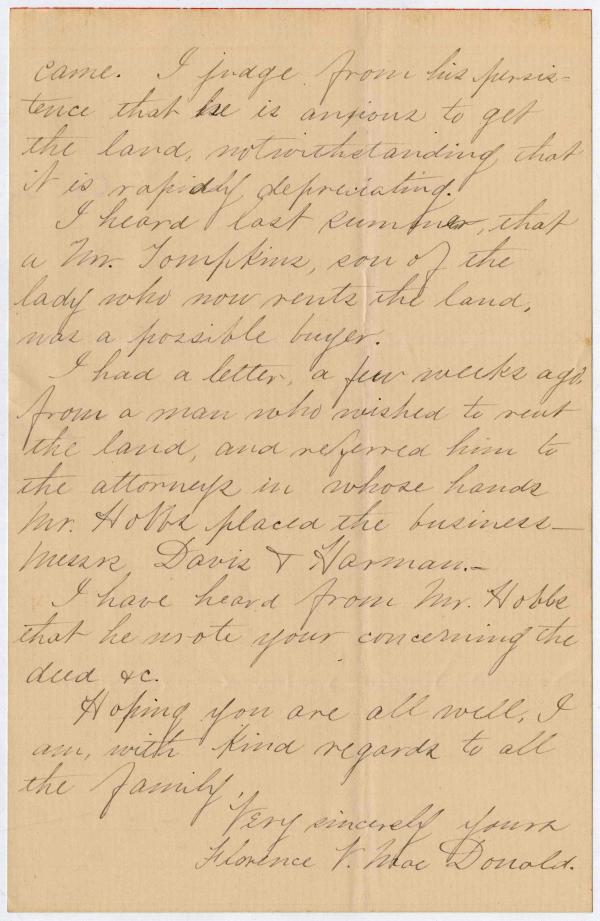 came. I judge from his persis-
tence that he is anxious to get
the land, notwithstanding that
it is rapidly depreciating.
I heard last summer, that
a Mr. Tompkins, son of the
lady who now rents the land,
was a possible buyer.
I had a letter, a few weeks ago,
from a man who wished to rent
the land, and referred him to
the attorneys in whose hands
Mr. Hobbs placed the business—
Messrs Davis & Harman.—
I have heard from Mr. Hobbs
that he wrote your concerning the
deed &c.
Hoping you are all well, I
am, with kind regards to all
the family,
Very sincerely yours
Florence V. Mac Donald.